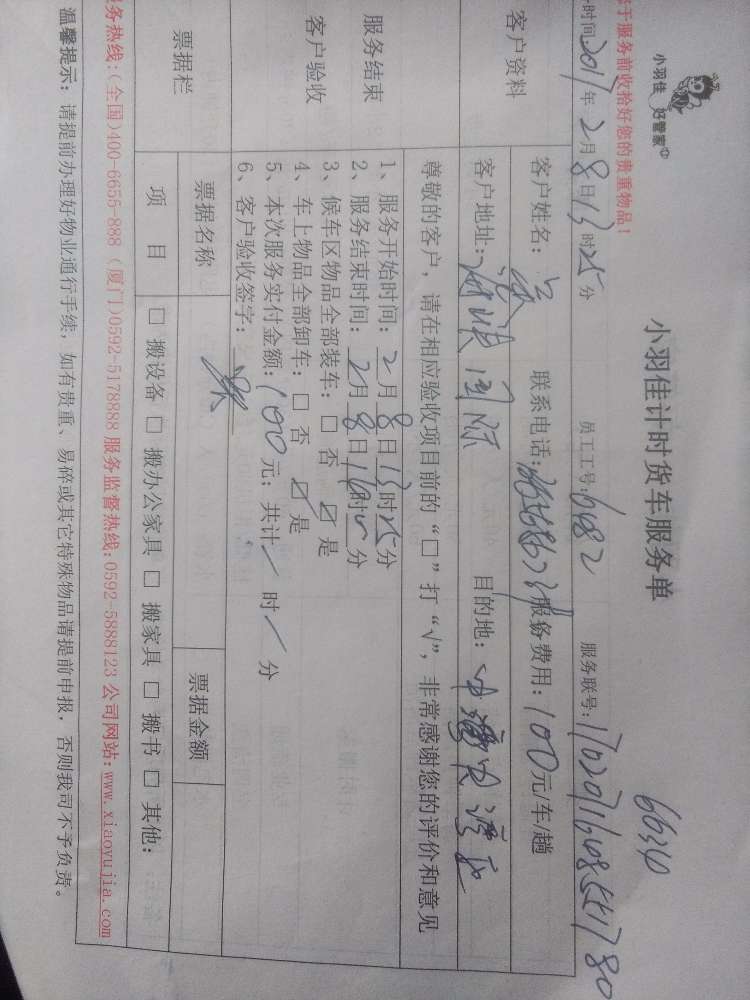 小羽佳 好管家
小羽佳计时货车服务单
6634
于服务前收拾好您的贵重物品！
时间2017年2月8日13时25分 员工工号: 服务联号:
客户资料
客户姓名: 联系电话: 服务费用:100元/车/趟
客户地址: 国际 目的地: 中
尊敬的客户，请在相应验收项目前的“□”打“√”，非常感谢您的评价和意见
服务结束
客户验收
1、服务开始时间:2月8日13时25分
2、服务结束时间:2月8日 时 分
3、候车区物品全部装车: □ 否 ☑ 是
4、车上物品全部卸车: □ 否 ☑ 是
5、本次服务实付金额:100元; 共计/时/分
6、客户验收签字:
票据栏
票据名称 票据金额
项 目 □ 搬设备 □ 搬办公家具 □ 搬家具 □ 搬书 □ 其他:
务热线:(全国)400-6655-888 (厦门)0592-5178888 服务监督热线:0592-5888123 公司网站:www.xiaoyujia.com
温馨提示: 请提前办理好物业通行手续，如有贵重、易碎或其它特殊物品请提前申报，否则我司不予负责。